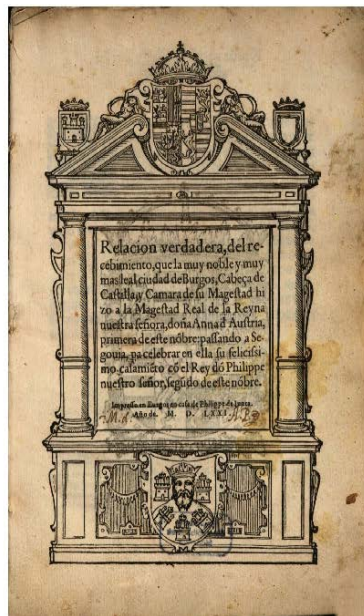 Relacion verdadera, del re-
cebimiento, que la muy noble y muy
mas leal ciudad de Burgos, Cabeça de
Castilla, y Camara de su Magestad hi
zo a la Magestad Real de la Reyna
nuestra señora, doña Anna d Austria,
primera de este nõbre: passando a Se-
gouia, pa celebrar en ella su felicissi-
mo casamiẽto cõ el Rey dõ Philippe
nuestro señor, segũdo de este nõbre.
Impressa en Burgos en casa de Philippe de Iunta.
Año de. M. D. LXXI.